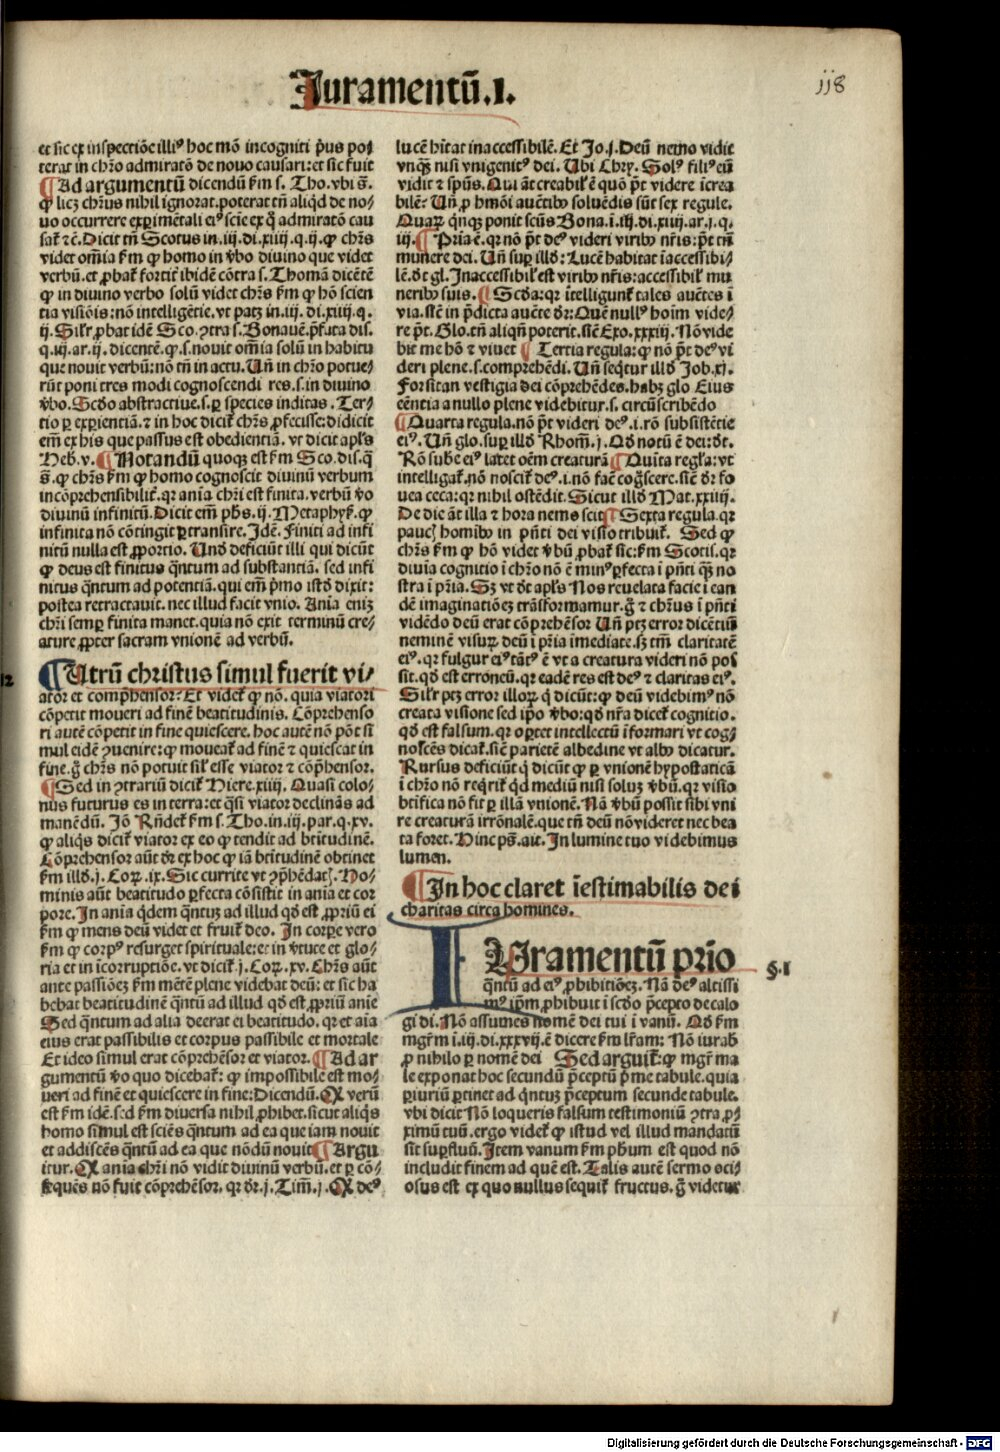 Iuramentū.I.
118
et sic ex inspectiōe illiꝰ hoc mō incogniti pͥus po⸗
terat in chr̄o admiratō de nouo causari: et sic fuit
¶ Ad argumentū dicendū ẜm s. Tho. vbi s̄.
ꝙ licꝫ chr̄us nihil ignorat. poterat tn̄ aliqd de no⸗
uo occurrere exꝑimētali eiꝰ sciē ex q̄ admiratō cau
sat᷑ ⁊c̄. Dicit tn̄ Scotus in .iij. di. xiiij. q. ij. ꝙ chr̄s
videt om̄ia ẜm ꝙ homo in v̓bo diuino que videt
verbū. et ꝓbat᷑ fortit᷑ ibidē cōtra s. Thomā dicētē
ꝙ in diuino verbo solū videt chr̄s ẜm ꝙ hō scien
tia visiōis: nō intelligētie. vt patꝫ in .iij. di. xiiij. q.
ij. Silr̄ ꝓbat idē Sco. ꝯtra s. Bonauē. p̄fata dis.
q. iij. ar. ij. dicentē. ꝙ .s. nouit om̄ia solū in habitu
que nouit verbū: nō tn̄ in actu. Un̄ in chr̄o potue⸗
rūt poni tres modi cognoscendi res .s. in diuino
v̓bo. Scd̓o abstractiue .s. ꝑ species inditas. Ter⸗
tio ꝑ exꝑientiā. ⁊ in hoc dicit᷑ chr̄s ꝓfecisse: didicit
em̄ ex his que passus est obedientiā. vt dicit apl̄s
Heb. v. ¶ Notandū quoqꝫ est ẜm Sco. dis. q̄
s̄. ꝙ chr̄s ẜm ꝙ homo cognoscit diuinū verbum
incōprehensibilit᷑. qr̄ anīa chr̄i est finita. verbū v̓o
diuinū infinitū. Dicit em̄ ph̄s. ij. Metaphyẜ. ꝙ
infinita nō cōtingit ꝑtransire. Idē. Finiti ad infi
nitū nulla est ꝓportio. Und̓ deficiūt illi qui dicūt
ꝙ deus est finitus q̄ntum ad substantiā. sed infi
nitus q̄ntum ad potentiā. qui em̄ pͥmo istd̓ dixit:
postea retractauit. nec illud facit vnio. Anīa eniꝫ
chr̄i semꝑ finita manet. quia nō exit terminū cre⸗
ature ꝓpter sacram vnionē ad verbū.
12
¶ Utrū christus simul fuerit vi⸗
ator et comp̄hensor? Et videt᷑ ꝙ nō. quia viatori
cōpetit moueri ad finē beatitudinis. Cōprehenso
ri autē cōpetit in fine quiescere. hoc autē nō pōt si
mul eidē ꝯuenire: ꝙ moueat᷑ ad finē ⁊ quiescat in
fine. g̊ chr̄s nō potuit sil̓ esse viator ⁊ cōp̄hensor.
¶ Sed in ꝯtrariū dicit᷑ Hiere. xiiij. Quasi colo⸗
nus futurus es in terra: et q̄si viator declinās ad
manēdū. Jō Rn̄det᷑ ẜm s. Tho. in .iij. par. q. xv.
ꝙ aliqͥs dicit᷑ viator ex eo ꝙ tendit ad btītudinē.
Cōprehensor aūt dr̄ ex hoc ꝙ iā btītudinē obtinet
ẜm illd̓ .j. Corꝝ. ix. Sic currite vt ꝯp̄hēdatꝭ. Ho⸗
minis aūt beatitudo ꝑfecta cōsistit in anīa et cor
pore. In anīa qͥdem q̄ntuꝫ ad illud qd̓ est ꝓpriū ei
ẜm ꝙ mens deū videt et fruit᷑ deo. In corꝑe vero
ẜm ꝙ corpꝰ resurget spirituale: et in v̓tuce et glo⸗
ria et in īcorruptiōe. vt dicit᷑ .j. Corꝝ. xv. Chr̄s aūt
ante passiōeꝫ ẜm mētē plene videbat deū: et sic ha
bebat beatitudinē q̄ntū ad illud qd̓ est ꝓpriū anīe
Sed q̄ntum ad alia deerat ei beatitudo. qr̄ et aīa
eius erat passibilis et corpus passibile et mortale
Et ideo simul erat cōprehēsor et viator. ¶ Ad ar
gumentū v̓o quo dicebat᷑: ꝙ impossibile est mo⸗
ueri ad finē et quiescere in fine: Dicendū. Ꝙ verū
est ẜm idē. sed ẜm diuersa nihil ꝓhibet. sicut aliqͥs
homo simul est sciēs q̄ntum ad ea que iam nouit
et addiscēs q̄ntū ad ea que nōdū nouit ¶ Argu
itur. Ꝙ anīa chr̄i nō vidit diuinū verbū. et ꝑ cō⸗
sequēs nō fuit cōprehēsor. qr̄ dr̄ .j. Tim̄. j. Ꝙ deꝰ
lucē hītat inaccessibilē. Et Jo. j. Deū nemo vidit
vnqꝫ nisi vnigenitꝰ dei. Ubi Chry. Solꝰ filiꝰ eū
vidit ⁊ spūs. Qui āt creabil̓ ē quō pt̄ videre īcrea
bilē. Un̄ ꝓ hmōi auētibꝰ soluēdis sūt sex regule.
Quaꝝ q̄nqꝫ ponit scūs Bona. ī .iij. di. xiiij. ar. j. q.
iij. ¶ Pria ē. qr̄ nō pt̄ deꝰ videri viribꝰ nr̄is: pt̄ tn̄
munere dei. Un̄ suꝑ illd̓: Lucē habitat īaccessibi⸗
lē. dt̄ gl. Inaccessibil̓ est viribꝰ nr̄is: accessibil̓ mu
neribꝰ suis. ¶ Scd̓a: qr̄ ītelligunt᷑ tales auētes ī
via. stē in p̄dicta auēte dr̄: Quē nullꝰ hoīm vide⸗
re pt̄. Glo. tn̄ aliqn̄ poterit. sic Exo. xxxiij. Nō vide
bit me hō ⁊ viuet ¶ Tertia regula: ꝙ nō pt̄ deꝰ vi
deri plene .s. comprehēdi. Un̄ seqͥtur illd̓ Job. xj.
Forsitan vestigia dei cōprehēdes. habꝫ glo Eius
eēntia a nullo plene videbitur .s. circūscribēdo
¶ Quarta regula. nō pt̄ videri deꝰ .i. rō subsistētie
eiꝰ. Un̄ glo. suꝑ illd̓ Rhom̄. j. Qd̓ notū ē dei: dt̄.
Rō subē eiꝰ latet oēm creaturā ¶ Quīta regl̓a: vt
intelligat᷑. nō noscit᷑ de̓ .i. nō facē cog̊scere. siē dr̄ fo
uea ceca: qr̄ nihil ostēdit. Sicut illd̓ Mat. xxiiij.
De die āt illa ⁊ hora nemo scit ¶ Sexta regula. qr̄
paucꝭ homībꝰ in pn̄ti dei visio tribuit᷑. Sed ꝙ
chr̄s ẜm ꝙ hō videt v̓bū ꝓbat᷑ sic: ẜm Scotū. qr̄
diuīa cognitio ī chr̄o nō ē minꝰ ꝑfecta ī pn̄ti qꝫ no
stra ī pr̄ia. Sꝫ vt dt̄ apl̄s Nos reuelata facie ī ean
dē imaginatiōeꝫ trāsformamur. g̊ ⁊ chr̄us ī pn̄ti
vidēdo deū erat cōprehēsor Un̄ ptꝫ error dicētiū
neminē visuꝝ deū ī pr̄ia īmediate. sꝫ tm̄ claritatē
eiꝰ. qr̄ fulgur eiꝰ tātꝰ ē vt a creatura videri nō pos
sit. qd̓ est erroneū. qr̄ eadē res est deꝰ ⁊ claritas eiꝰ.
Silr̄ ptꝫ error illoꝝ qͥ dicūt: ꝙ deū videbimꝰ nō
creata visione sed ip̄o v̓bo: qd̓ nr̄a dicet᷑ cognitio.
qd̓ est falsum. qr̄ oꝑtet intellectū īformari vt cog⸗
noscēs dicat᷑. siē parietē albedine vt albꝰ dicatur.
Rursus deficiūt qͥ dicūt ꝙ ꝑ vnionē hypostaticā
ī chr̄o nō reqͥrit᷑ qͥd mediū nisi soluꝫ v̓bū. qr̄ visio
btīfica nō fit ꝑ illā vnionē. Nā v̓bū possit sibi vni
re creaturā irrōnalē. que tn̄ deū nō videret nec bea
ta foret. Hinc pſ̄. ait. In lumine tuo videbimus
lumen.
¶ In hoc claret īestimabilis dei
charitas circa homines.
IUramentū prīo
§.I
q̄ntū ad eiꝰ ꝓhibitiōeꝫ. Nā deꝰ altissi
mꝰ ip̄m ꝓhibuit ī scd̓o p̄cepto decalo
gi di. Nō assumes nomē dei tui ī vanū. Qd̓ ẜm
mgr̄m ī .iij. di. xxxvij. ē dicere ẜm lr̄am: Nō iurabꝭ
ꝓ nihilo ꝑ nomē dei Sed arguit᷑: ꝙ mgr̄ ma
le exponat hoc secundū p̄ceptū pͥme tabule. quia
ꝑiuriū ꝑtinet ad qͥntuꝫ p̄ceptum secunde tabule.
vbi dicit Nō loqueris falsum testimoniū ꝯtra ꝓ⸗
ximū tuū. ergo videt᷑ ꝙ istud vel illud mandatū
sit suꝑfluū. Item vanum ẜm ph̄um est quod nō
includit finem ad quē est. Talis autē sermo oci⸗
osus est ex quo nullus sequit᷑ fructus. g̊ videtur
Digitalisierung gefördert durch die Deutsche Forschungsgemeinschaft - DFG